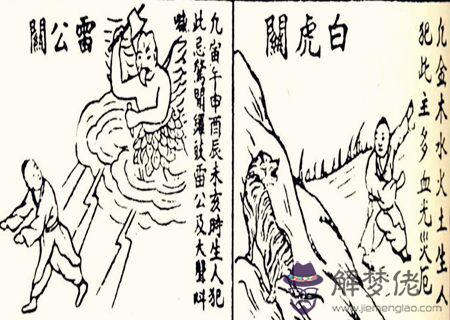 凡金木水火土生人
犯此主多血光災厄
白虎關
凡寅午申酉辰未亥時生人犯
此忌驚聞鑼鼓雷公及大聲叫
喊
雷公關
解梦佬
www.jiemenglao.com